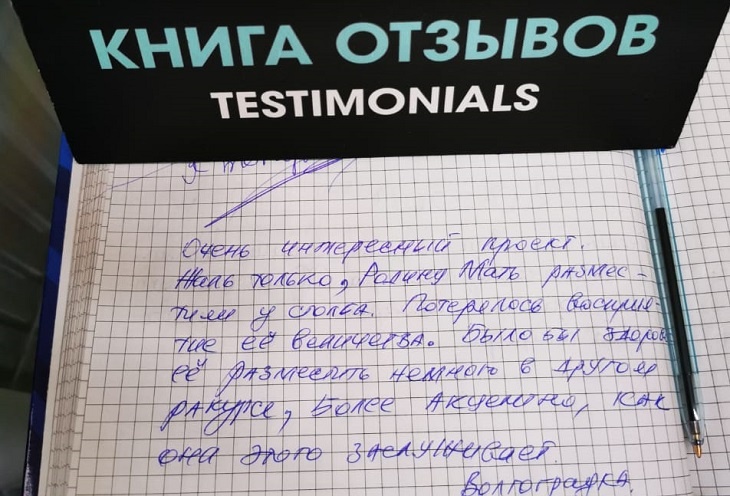 КНИГА ОТЗЫВОВ
TESTIMONIALS
Очень интересный проект.
Жаль только, Родину Мать размес-
тили у столба. Потерялось восприя-
тие её величества. Было бы здоров
её разместить немного в другом
ракурсе, более акцентно, как
она этого заслуживает.
Волгоградка.